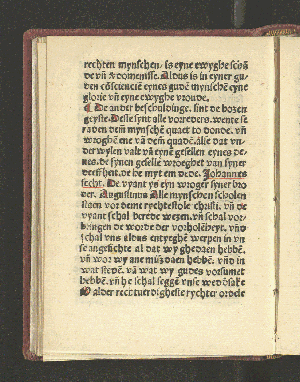 rechten mynschen, is eyne ewyghe schā
de vñ &domenisse. Aldus is in eyner gu
den cōsciencië eynes gudē mynschē eyne
glorie vñ eyne ewyghe vroude.
¶ De ander beschuldinge. sint de bozen
geyste. Desse synt alle vorreders. wente se
raden dem mynschē quaet to donde. vñ
wroghē ene vā dem quade. alse dat vn-
der wylen valt vā eynē gesellen eynes de-
ues. de synen geselle wroeghet van syner
deefheit. de he myt em dede. Johannes
secht. De vyant ys eyn wroger syner bro
der. Augustinus Alle mynschen scholen
staen vor deme rychtestole christi. vñ de
vyant schal berede wezen. vñ schal vor-
bringen de worde der vorholēheyt. vñ
schal vns aldus entyeghē werpen in vn
se angesichte al dat wy ghedaen hebbē.
vñ wor wy ane misdaen hebbē. vñ in
wat stedē. vñ wat wy gudes vorsumet
hebbē. vñ he schal seggē vnse wedersake
O alder rechtuerdigheste rychter ordele